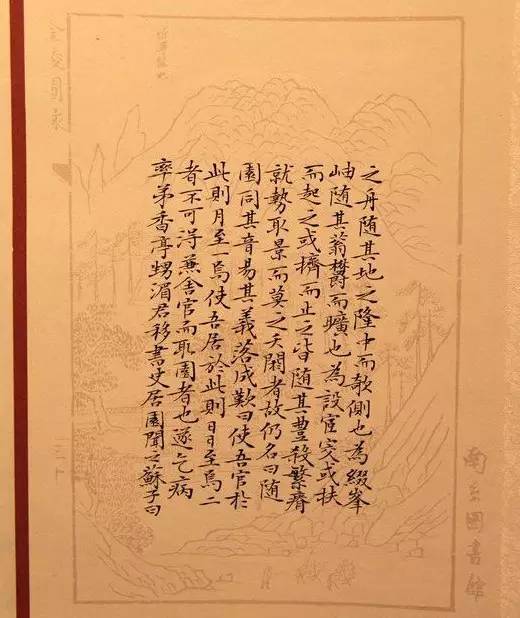 之舟随其地之隆中而欹側也為綴峯
岫随其蓊欝而曠也為設宧窔或扶
而起之或擠而止之皆随其豐殺繁瘠
就勢取景而莫之夭閼者故仍名曰随
園同其音易其義落成歎曰使吾官於
此則月至一焉使吾居於此則日日至焉二
者不可得兼舍官而取園者也遂乞病
率弟香亭甥湄君移書史居園聞之蘇子曰
南京圖書館